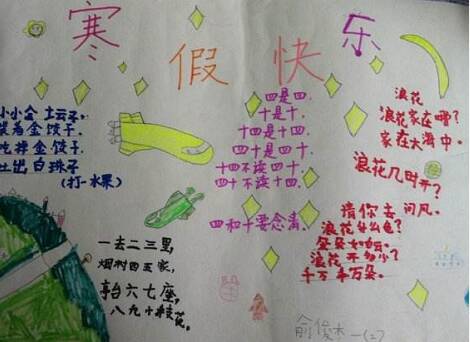 寒假快乐
小小金坛子，
装着金饺子，
吃掉金饺子，
吐出白珠子
(打一水果)
一去二三里，
烟村四五家，
亭台六七座，
八九十枝花。
四是四，
十是十，
十四是十四，
四十是四十，
十四不读四十，
四十不读十四，
四和十要念清。
浪花
浪花家在哪？
家在大海中。
浪花几时开？
请你去问风。
浪花什么色？
朵朵如白云。
浪花开多少？
千万千万朵。
一(二)